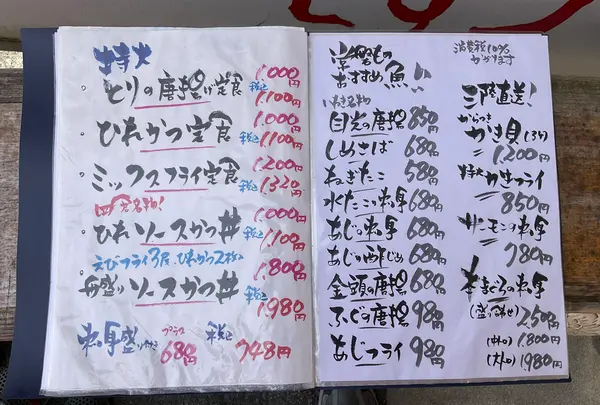 特大
・とりの唐揚げ定食 1.000円
税込 1.100円
・ひれかつ定食 1.000円
税込 1.100円
・ミックスフライ定食 1.200円
税込 1.320円
名物!
・ひれソースかつ丼 1.000円
税込 1.100円
えびフライ3尾、ひれかつ2枚
・舟盛りソースかつ丼 1.800円
税込 1.980円
刺身盛り付き プラス 680円 税込 748円
おすすめ魚!!
いわき名物
目光の唐揚 850円
しめさば 680円
ねぎたこ 580円
水たこの刺身 680円
あじの刺身 680円
あじの酢じめ 680円
金頭の唐揚 680円
ふぐの唐揚 980円
あじフライ 980円
消費税10%
かかります
三陸直送!
からつき
かき貝(3ケ)
1.200円
特大かきフライ
850円
サーモン刺身
780円
本まぐろの刺身
(盛り合せ) 2.500円
(中トロ) 1.800円
(大トロ) 1.980円